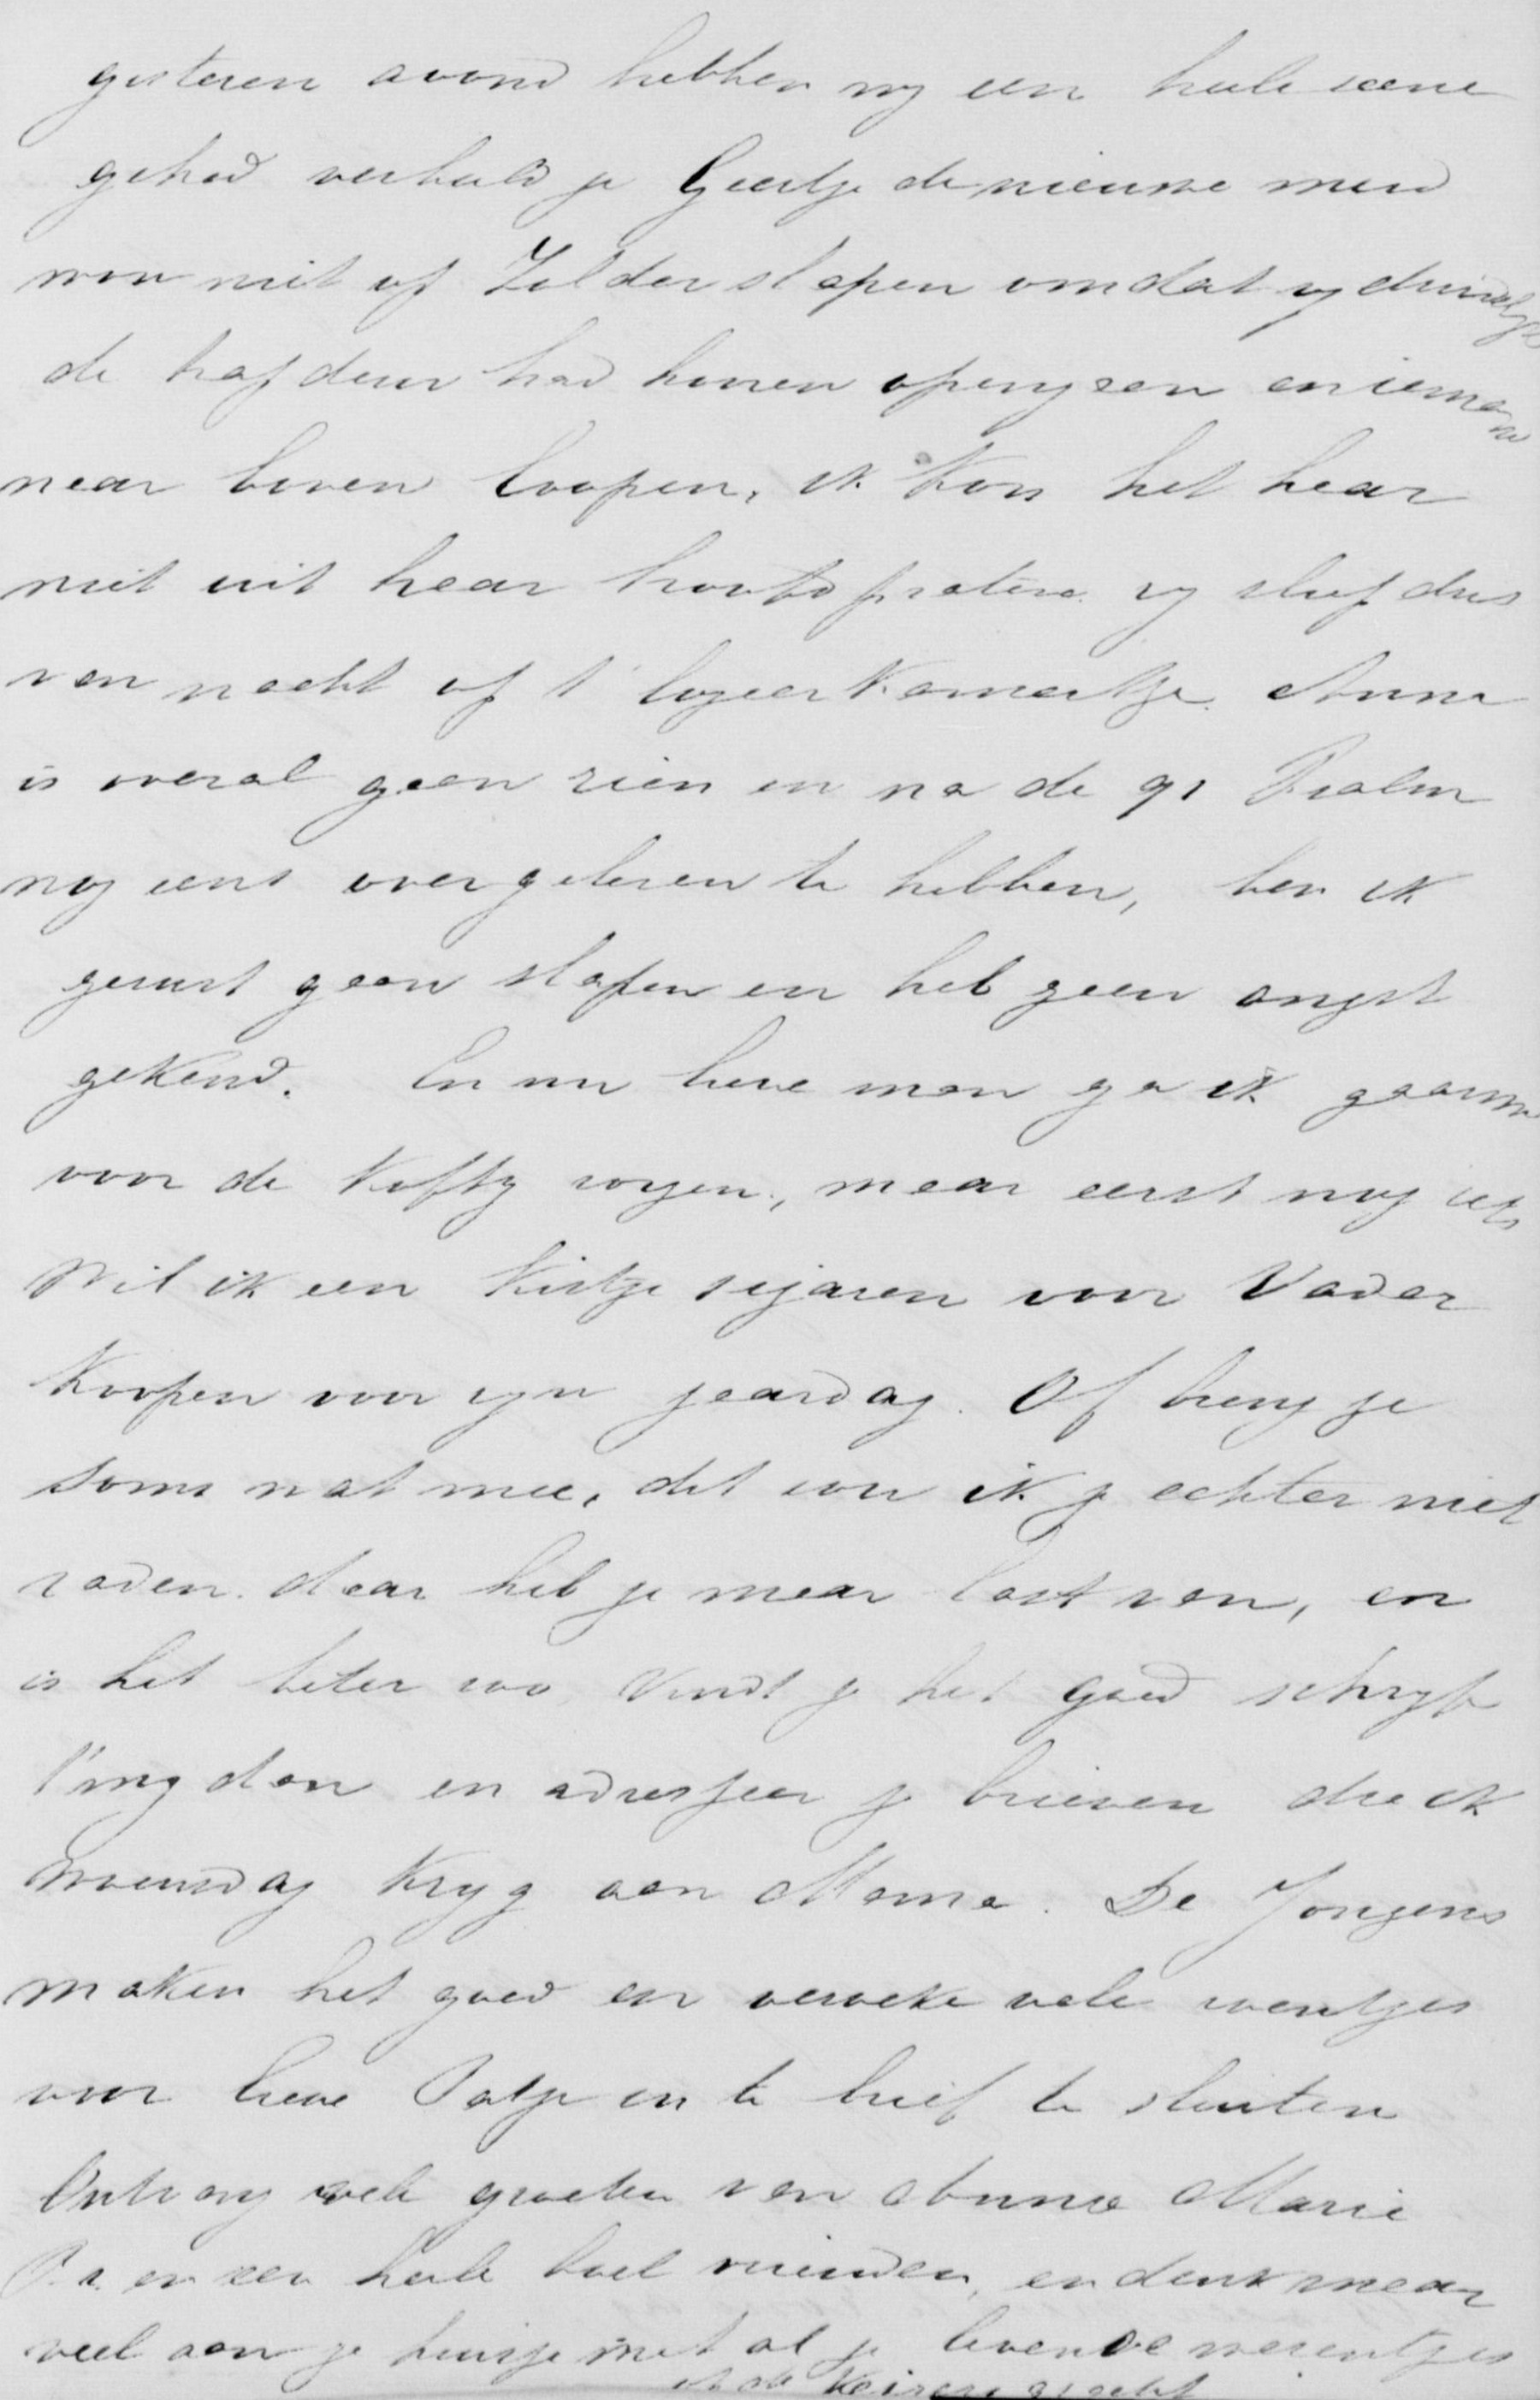 gisteren avond hebben wy een heele scene
gehad verbeeld je Geertje de nieuwe meid
wou niet op Zolder slapen omdat zy duidelyk
de trapdeur had hooren opengaan en iemand
naar boven loopen, ik kon het haar
niet uit haar hoofd praten. zy sliep dus
van nacht op 't logeerkamertje. Anna
is overal gaan zien en na de 91 Psalm
nog eens overgelezen te hebben, ben ik
gerust gaan slapen en heb geen angst
gekend. En nu lieve man ga ik gaauw
voor de koffy zorgen, maar eerst nog iets
Wil ik een kistje sigaren voor Vader
koopen voor zyn jaardag. Of breng je
soms wat mee, dit zou ik je echter niet
raden. daar heb je maar last van, en
is het beter zoo. Vindt je het goed schryf
't my dan en adresseer je brieven die ik
woensdag kryg aan Mama. De Jongens
maken het goed en verzoeke vele zoentjes
voor lieve Patje in te brief te sluiten
Ontvang vele groeten van Anna Marie
P.s. en een heele boel vrienden, en denk maar
veel aan je huisje met al je levende wezentjes
it de Keizersgracht